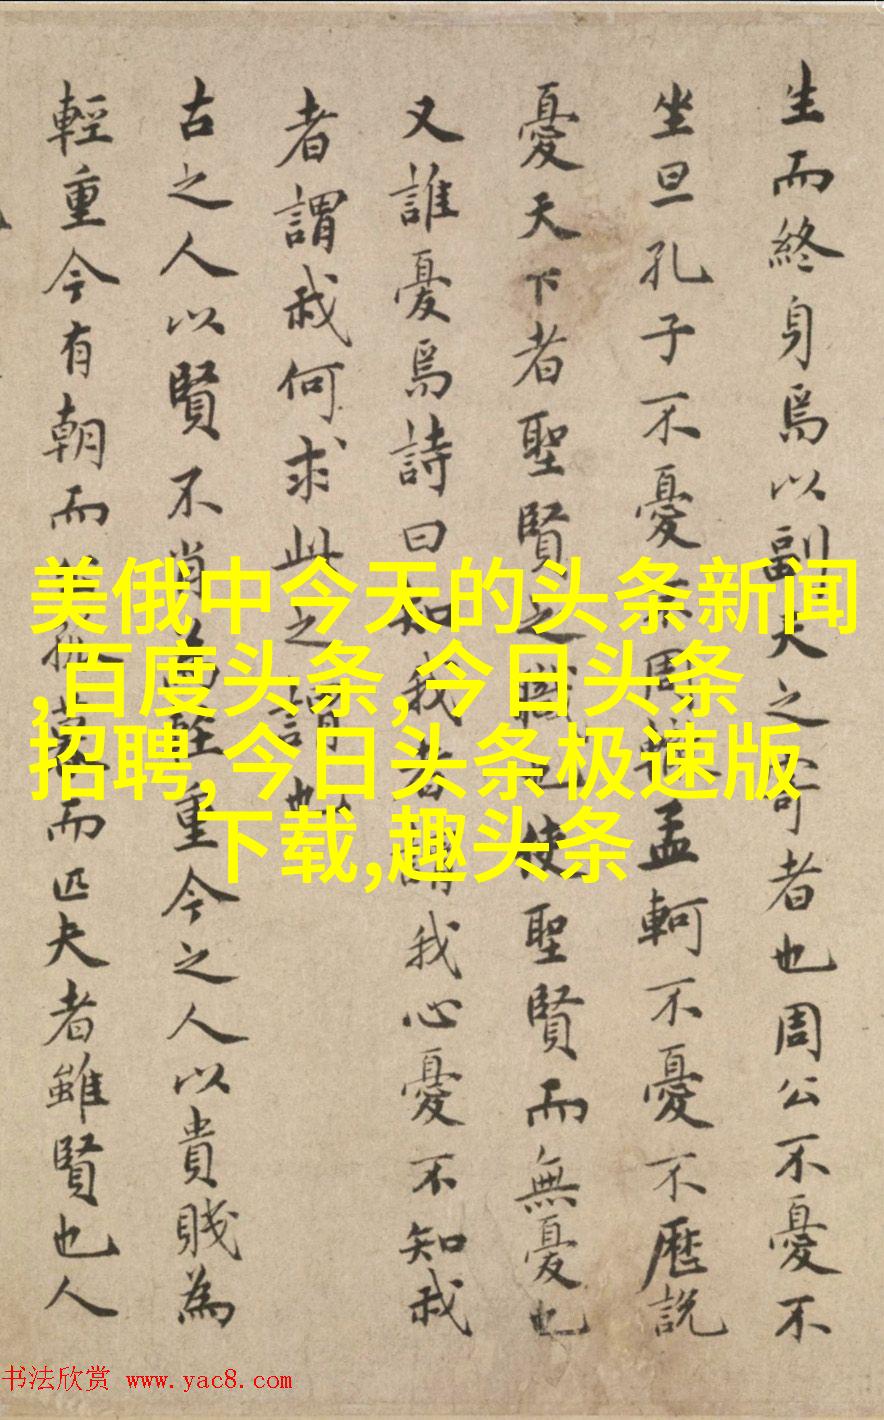 生而終身焉以副天之者也周公不憂不
坐旦孔子不憂不周遊孟軻不憂不歷說
憂天下者聖賢之職也使聖賢而無憂也
又誰憂焉詩曰知我者謂我心憂不知我
者謂我何求此之謂也
古之人以賢不肖為輕重今之人以貴賤為
輕重今有朝而而匹夫者雖賢也人
美俄中今天的头条新闻
,百度头条,今日头条
招聘,今日头条极速版
下载,趣头条
书法欣赏 www.yac8.com